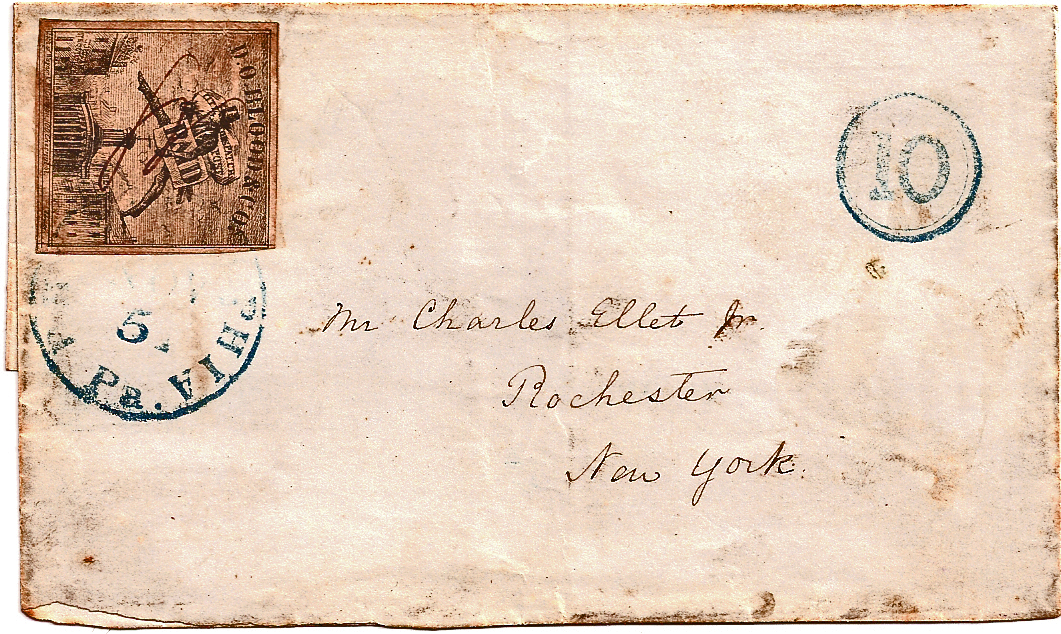 D.O. BLOOD & CO'S
10
5
Pa.
Mr Charles Ellet Jr.
Rochester
New York.